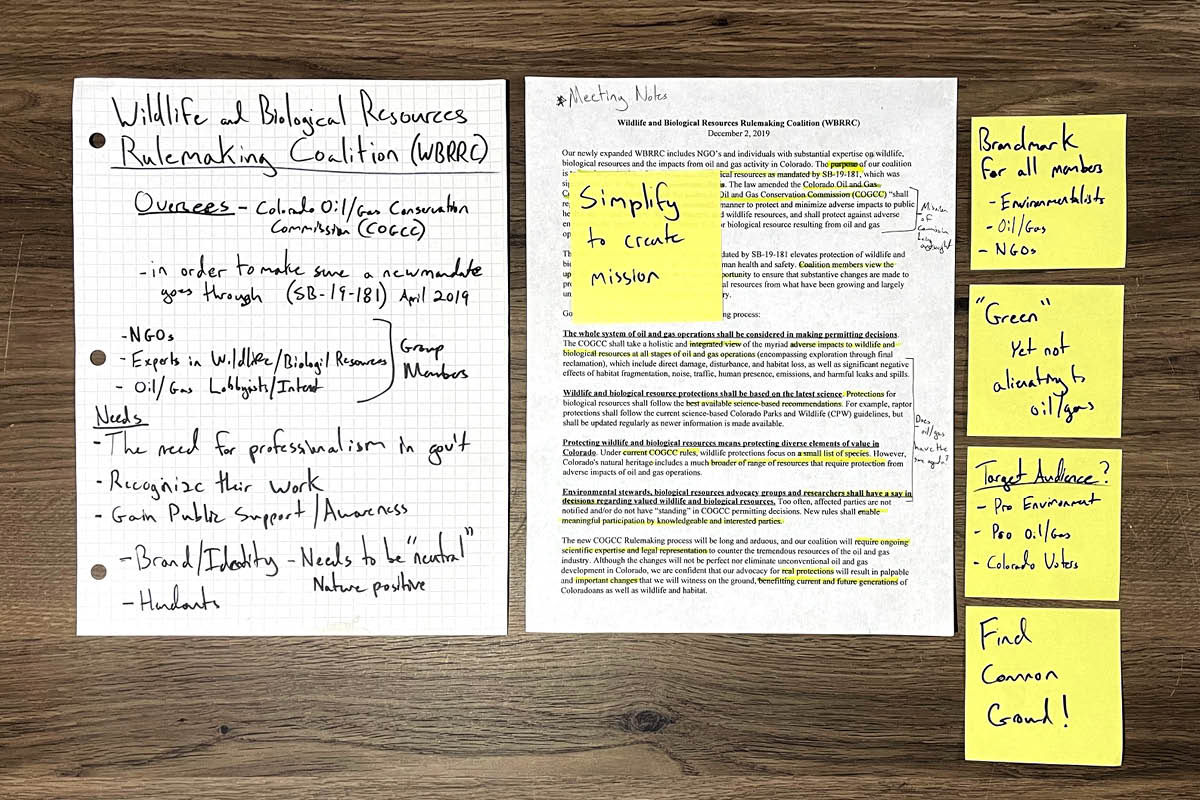 Wildlife and Biological Resources
Rulemaking Coalition (WBRRC)
Oversees - Colorado Oil/Gas Conservation
Commission (COGCC)
- in order to make sure a new mandate
goes through (SB-19-181) April 2019
- NGOs
- Experts in Wildlife/Biologil Resources
- Oil/Gas Lobbyists/Interest
Group
Members
Needs
- The need for professionalism in gov't
- Recognize their work
- Gain Public Support/Awareness
- Brand/Identity - Needs to be "neutral"
Nature positive
- Handouts
*Meeting Notes
Wildlife and Biological Resources Rulemaking Coalition (WBRRC)
December 2, 2019
Our newly expanded WBRRC includes NGO's and individuals with substantial expertise on wildlife,
biological resources and the impacts from oil and gas activity in Colorado. The purpose of our coalition
is
ical resources as mandated by SB-19-181, which was
The law amended the Colorado Oil and Gas
Oil and Gas Conservation Commission (COGCC) "shall
manner to protect and minimize adverse impacts to public
and wildlife resources, and shall protect against adverse
or biological resource resulting from oil and gas
Mission
of
being
Simplify
to create
mission
dated by SB-19-181 elevates protection of wildlife and
man health and safety. Coalition members view the
portunity to ensure that substantive changes are made to
al resources from what have been growing and largely
ry.
Go
ng process:
The whole system of oil and gas operations shall be considered in making permitting decisions.
The COGCC shall take a holistic and integrated view of the myriad adverse impacts to wildlife and
biological resources at all stages of oil and gas operations (encompassing exploration through final
reclamation), which include direct damage, disturbance, and habitat loss, as well as significant negative
effects of habitat fragmentation, noise, traffic, human presence, emissions, and harmful leaks and spills.
Wildlife and biological resource protections shall be based on the latest science. Protections for
biological resources shall follow the best available science-based recommendations. For example, raptor
protections shall follow the current science-based Colorado Parks and Wildlife (CPW) guidelines, but
shall be updated regularly as newer information is made available.
Protecting wildlife and biological resources means protecting diverse elements of value in
Colorado. Under current COGCC rules, wildlife protections focus on a small list of species. However,
Colorado's natural heritage includes a much broader of range of resources that require protection from
adverse impacts of oil and gas operations.
Does
oil/gas
have the
Environmental stewards, biological resources advocacy groups and researchers shall have a say in
decisions regarding valued wildlife and biological resources. Too often, affected parties are not
notified and/or do not have "standing" in COGCC permitting decisions. New rules shall enable
meaningful participation by knowledgeable and interested parties.
The new COGCC Rulemaking process will be long and arduous, and our coalition will require ongoing
scientific expertise and legal representation to counter the tremendous resources of the oil and gas
industry. Although the changes will not be perfect nor eliminate unconventional oil and gas
development in Colorado, we are confident that our advocacy for real protections will result in palpable
and important changes that we will witness on the ground, benefitting current and future generations of
Coloradoans as well as wildlife and habitat.
Brandmark
for all members
- Environmentalists
- Oil/Gas
- NGOs
"Green"
Yet not
alienating to
oil/gas
Target Audience?
- Pro Environment
- Pro Oil/Gas
- Colorado Voters
Find
Common
Ground!